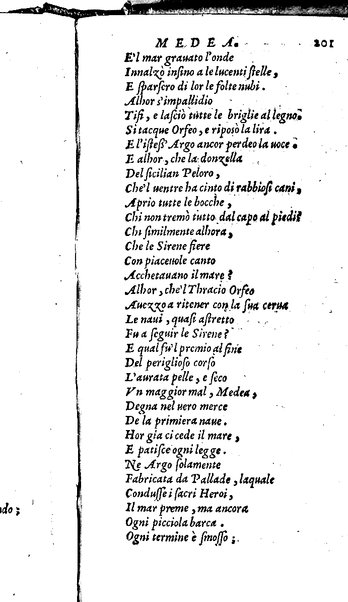 MEDEA. 201
E'l mar grauato l'onde
Innalzò insino a le lucenti stelle,
E sparsero di lor le folte nubi.
Alhor s'impallidio
Tifi, e lasciò tutte le briglie al legno.
Si tacque Orfeo, e riposò la lira.
E l'istess' Argo ancor perdeo la uoce.
E alhor, che la donzella
Del sicilian Peloro,
Che'l uentre ha cinto di rabbiosi cani,
Aprio tutte le bocche,
Chi non tremò tutto dal capo al piedi?
Chi similmente alhora,
Che le Sirene fiere
Con piaceuole canto
Acchetauano il mare?
Alhor, che'l Thracio Orfeo
Auezzo a ritener con la sua cetra
Le naui, quasi astretto
Fu a seguir le Sirene?
E qual fu'l premio al fine
Del periglioso corso
L'aurata pelle, e seco
Vn maggior mal, Medea,
Degna nel uero merce
De la primiera naue.
Hor gia ci cede il mare,
E patisce ogni legge.
Ne Argo solamente
Fabricata da Pallade, laquale
Condusse i sacri Heroi,
Il mar preme, ma ancora
Ogni picciola barca.
Ogni termine è smosso;
ndo;